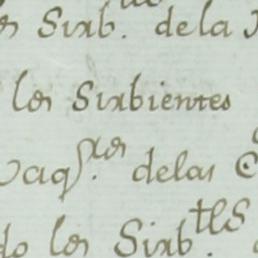 los Sirb. dela
los Sirbientes
Vaq.ros delas
do los Sirb.tes